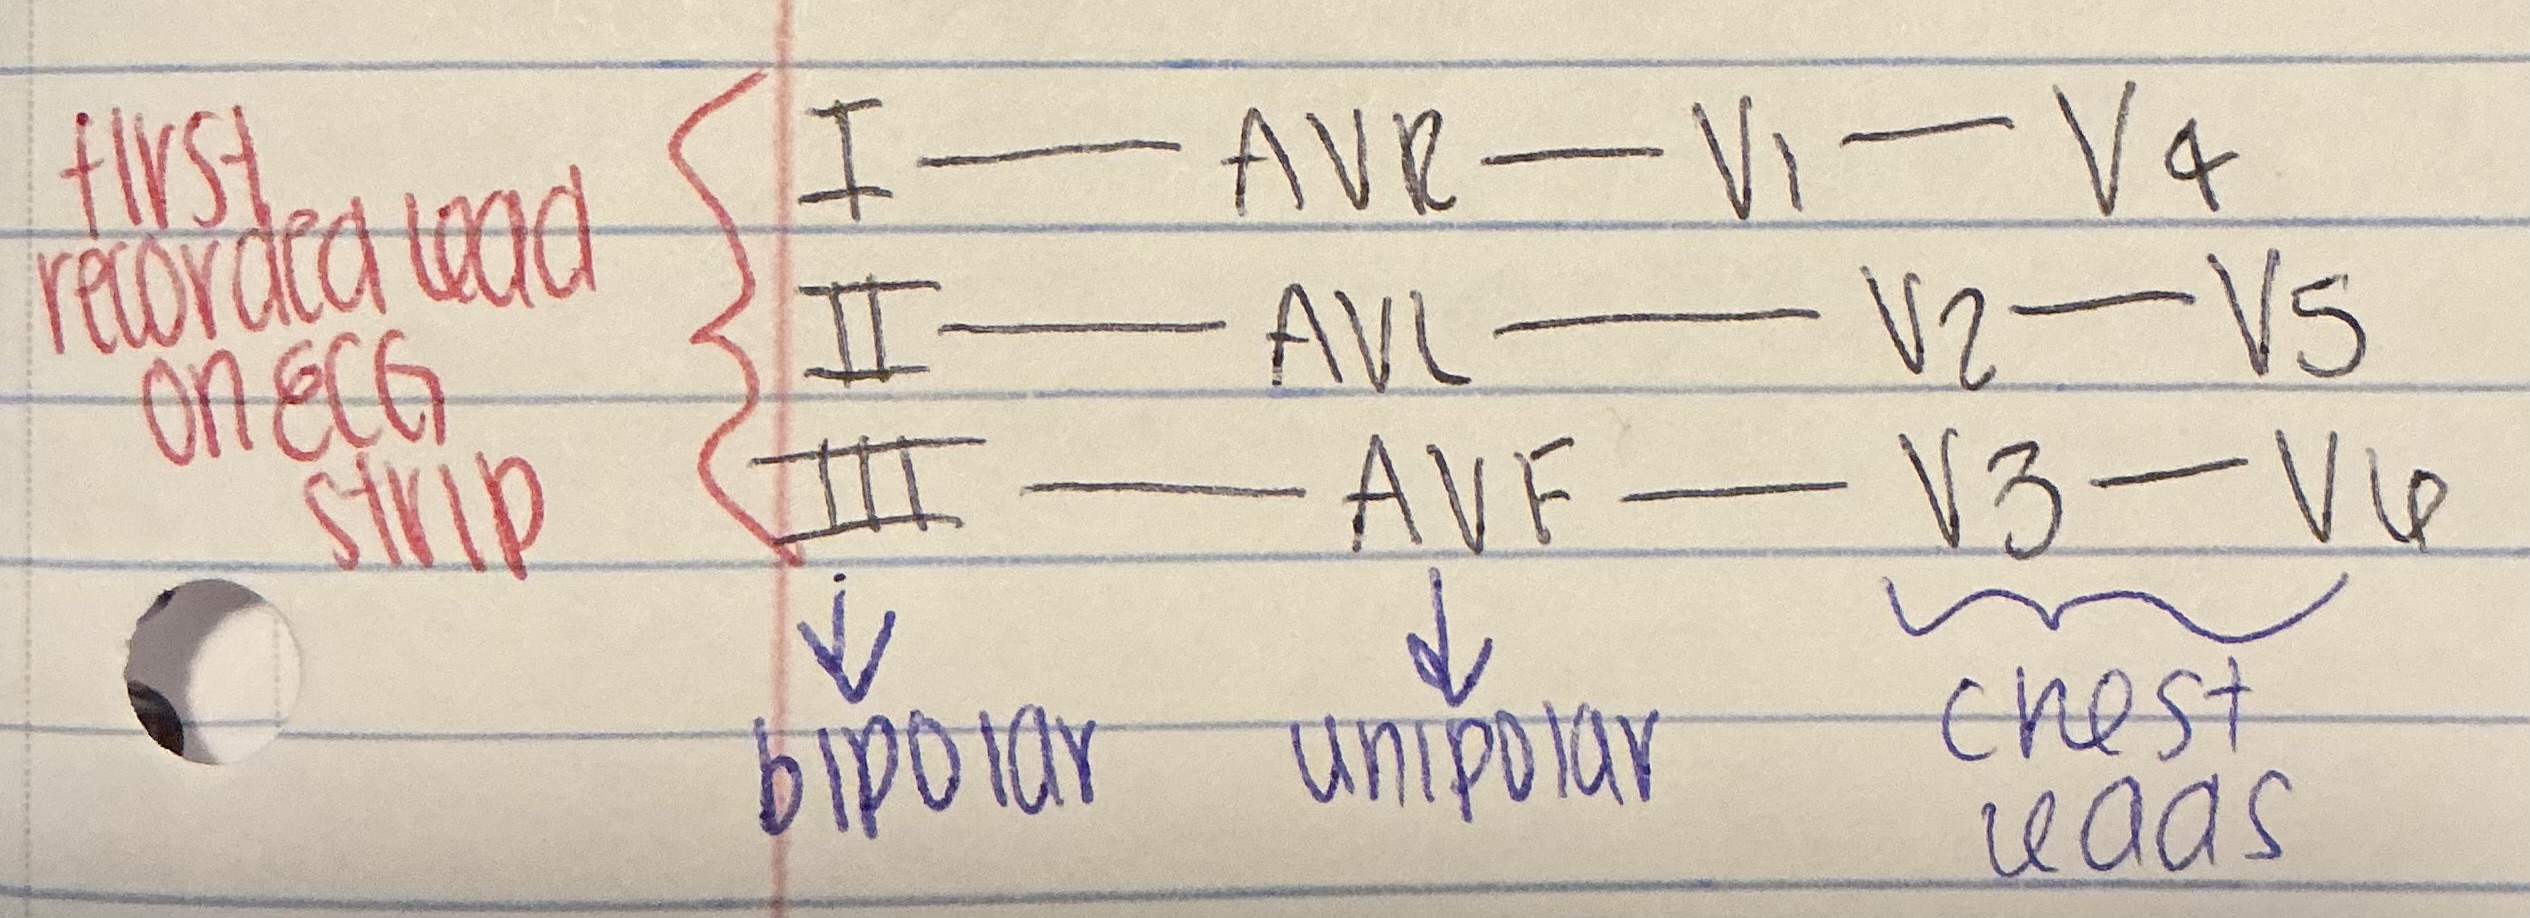 first
recorded lead
on ECG
strip
I — AVR — V1 — V4
II — AVL — V2 — V5
III — AVF — V3 — V6
bipolar
unipolar
chest
leads